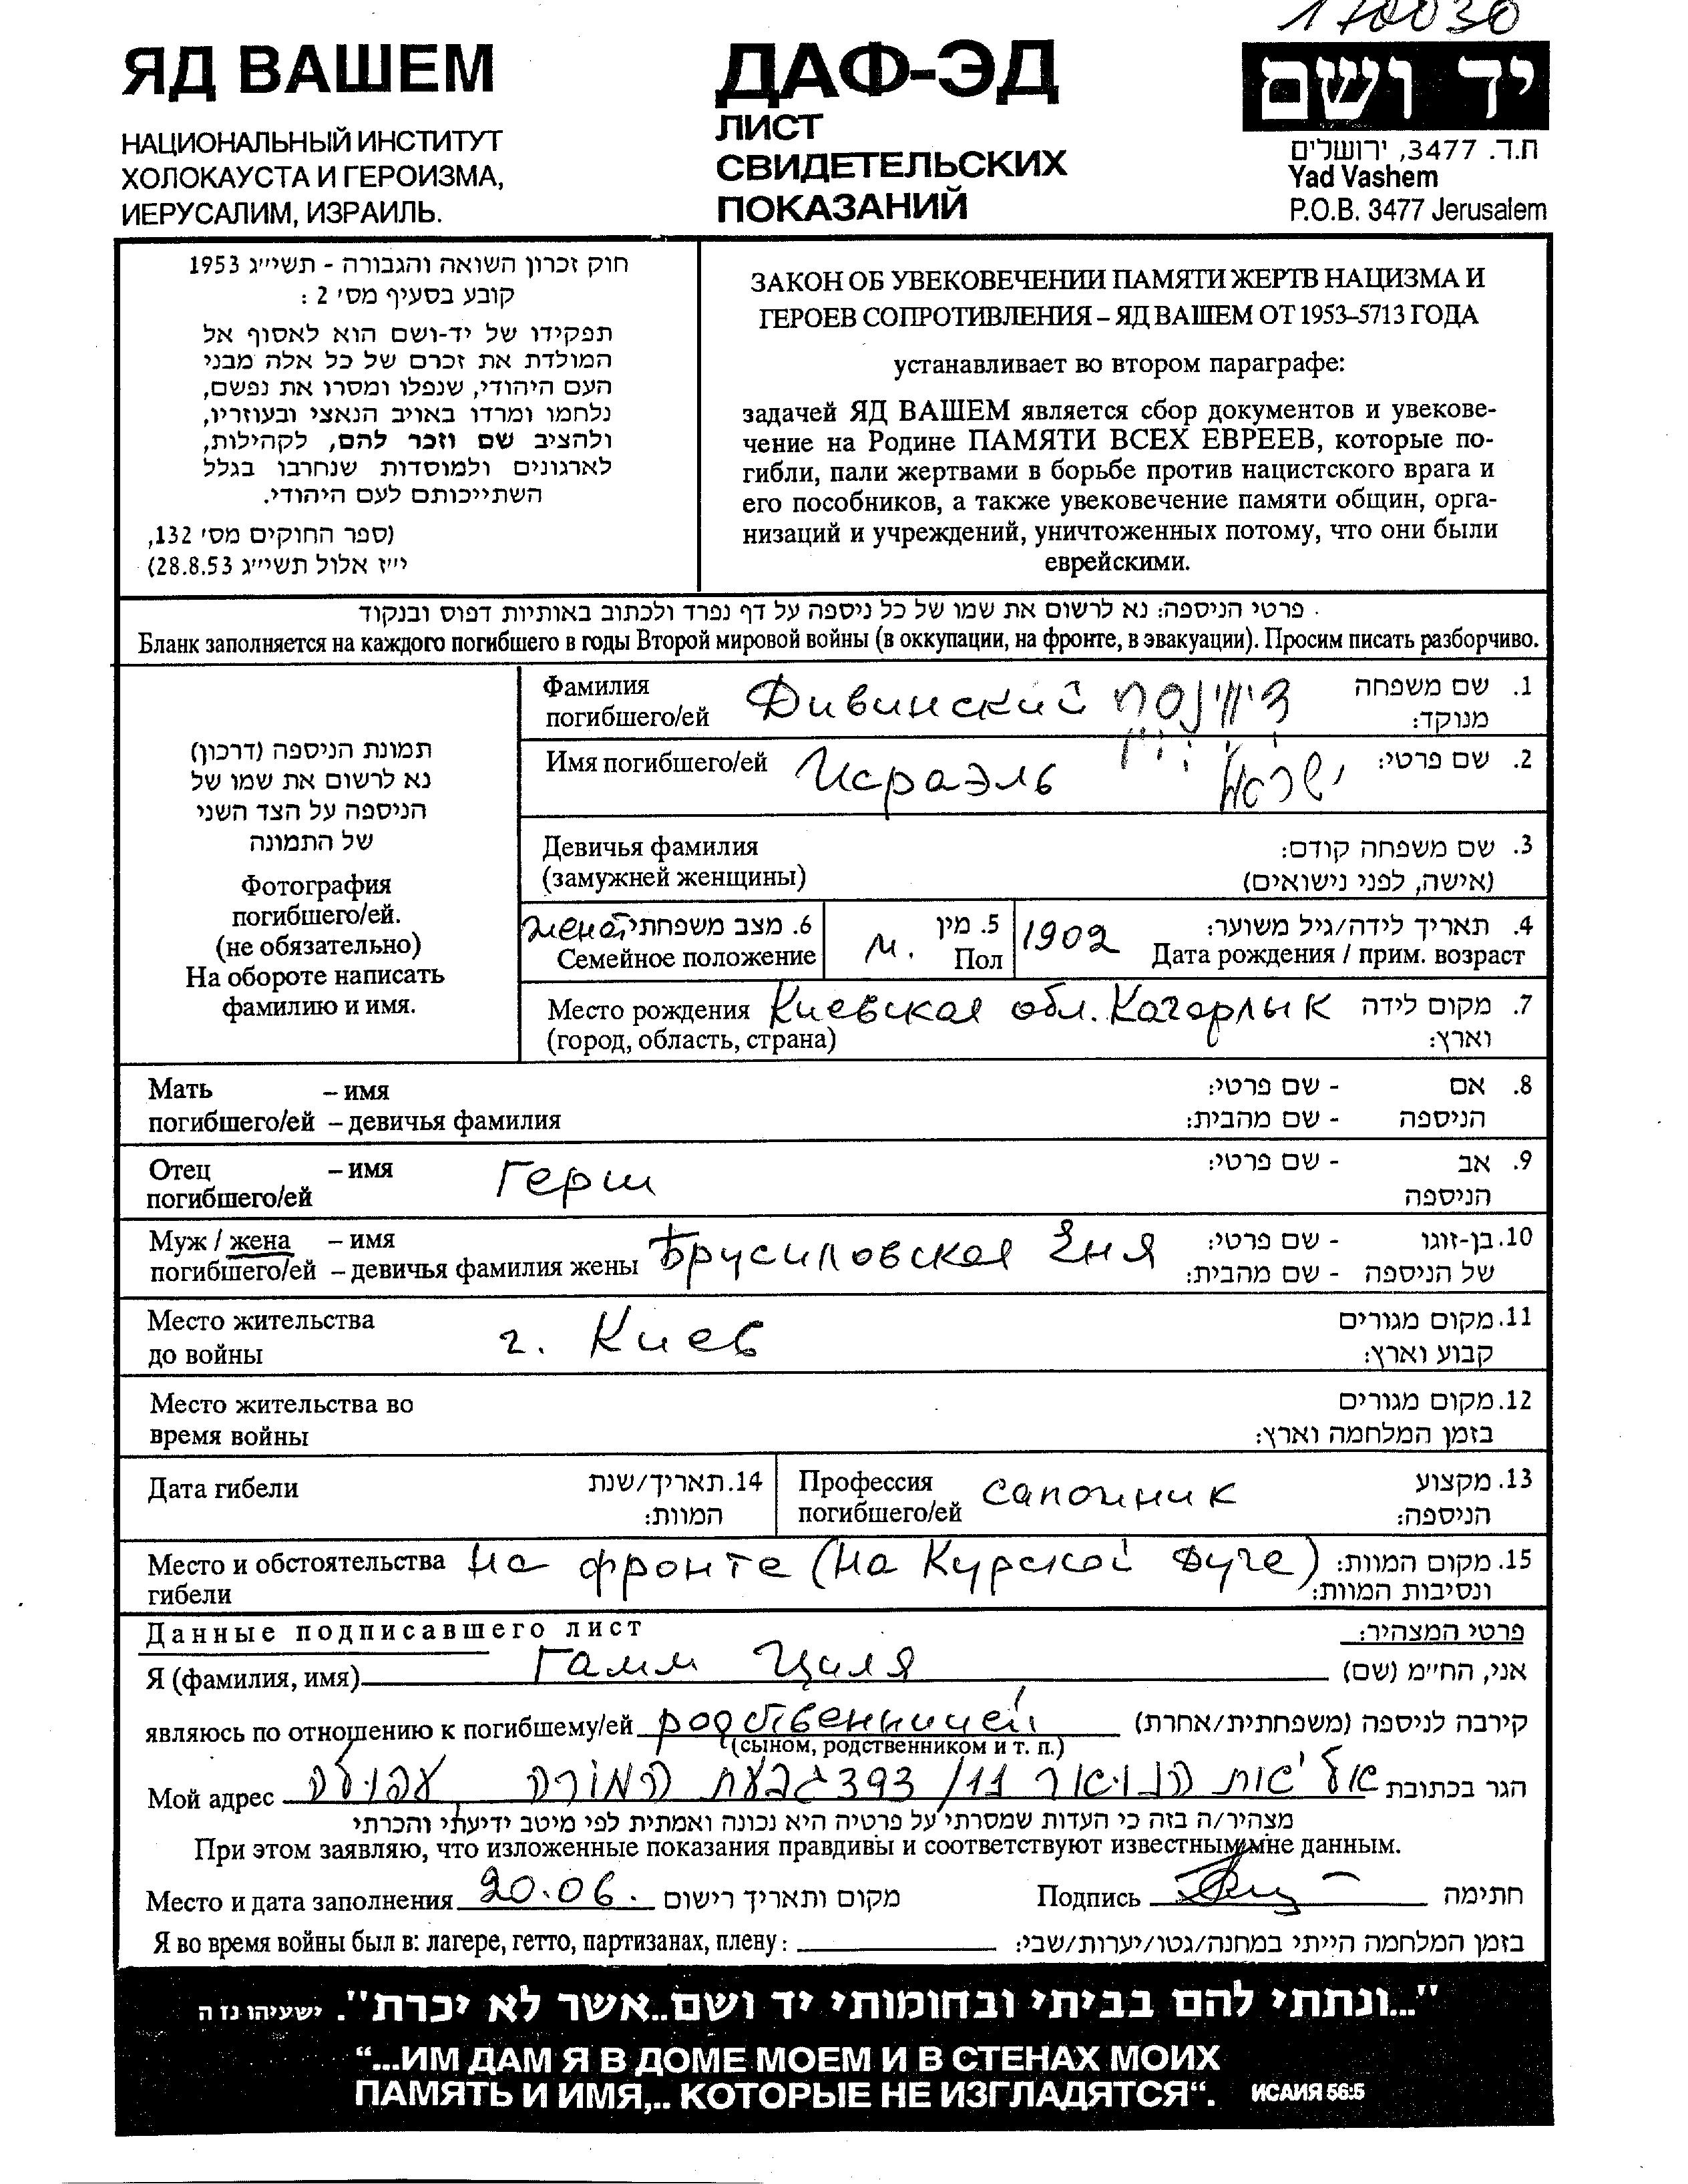 170030
ЯД ВАШЕМ
НАЦИОНАЛЬНЫЙ ИНСТИТУТ
ХОЛОКАУСТА И ГЕРОИЗМА,
ИЕРУСАЛИМ, ИЗРАИЛЬ.
ДАФ-ЭД
ЛИСТ
СВИДЕТЕЛЬСКИХ
ПОКАЗАНИЙ
יד ושם
ת.ד. 3477, ירושלים
Yad Vashem
P.O.B. 3477 Jerusalem
חוק זכרון השואה והגבורה - תשי״ג 1953
קובע בסעיף מס׳ 2 :
תפקידו של יד-ושם הוא לאסוף אל
המולדת את זכרם של כל אלה מבני
העם היהודי, שנפלו ומסרו את נפשם,
נלחמו ומרדו באויב הנאצי ובעוזריו,
ולהציב שם וזכר להם, לקהילות,
לארגונים ולמוסדות שנחרבו בגלל
השתייכותם לעם היהודי.
(ספר החוקים מס׳ 132,
י״ז אלול תשי״ג 28.8.53)
ЗАКОН ОБ УВЕКОВЕЧЕНИИ ПАМЯТИ ЖЕРТВ НАЦИЗМА И
ГЕРОЕВ СОПРОТИВЛЕНИЯ – ЯД ВАШЕМ ОТ 1953–5713 ГОДА
устанавливает во втором параграфе:
задачей ЯД ВАШЕМ является сбор документов и увекове-
чение на Родине ПАМЯТИ ВСЕХ ЕВРЕЕВ, которые по-
гибли, пали жертвами в борьбе против нацистского врага и
его пособников, а также увековечение памяти общин, орга-
низаций и учреждений, уничтоженных потому, что они были
еврейскими.
פרטי הניספה: נא לרשום את שמו של כל ניספה על דף נפרד ולכתוב באותיות דפוס ובנקוד
Бланк заполняется на каждого погибшего в годы Второй мировой войны (в оккупации, на фронте, в эвакуации). Просим писать разборчиво.
תמונת הניספה (דרכון)
נא לרשום את שמו של
הניספה על הצד השני
של התמונה
Фотография
погибшего/ей.
(не обязательно)
На обороте написать
фамилию и имя.
Фамилия Дивинский דיוינסקי 1. שם משפחה
погибшего/ей מנוקד:
Имя погибшего/ей Исраэль ישראל 2. שם פרטי:
Девичья фамилия 3. שם משפחה קודם:
(замужней женщины) (אישה, לפני נישואים)
женат 6. מצב משפחתי м. 5. מין 1902 4. תאריך לידה/גיל משוער:
Семейное положение Пол Дата рождения / прим. возраст
Место рождения Киевская обл. Кагарлык 7. מקום לידה
(город, область, страна) וארץ:
Мать – имя 8. אם - שם פרטי:
погибшего/ей – девичья фамилия הניספה - שם מהבית:
Отец – имя Герш 9. אב - שם פרטי:
погибшего/ей הניספה
Муж / жена – имя Брусиловская Эня 10. בן-זוגו - שם פרטי:
погибшего/ей – девичья фамилия жены של הניספה - שם מהבית:
Место жительства г. Киев 11. מקום מגורים
до войны קבוע וארץ:
Место жительства во 12. מקום מגורים
время войны בזמן המלחמה וארץ:
Дата гибели 14. תאריך/שנת Профессия сапожник 13. מקצוע
המוות: погибшего/ей הניספה:
Место и обстоятельства на фронте (на Курской дуге) 15. מקום המוות:
гибели ונסיבות המוות:
Данные подписавшего лист פרטי המצהיר:
Я (фамилия, имя) Гамм Циля אני, החי״מ (שם)
являюсь по отношению к погибшему/ей родственницей קירבה לניספה (משפחתית/אחרת)
(сыном, родственником и т. п.)
Мой адрес 393/11 גבעת המורה עפולה הגר בכתובת
מצהיר/ה בזה כי העדות שמסרתי על פרטיה היא נכונה ואמתית לפי מיטב ידיעתי והכרתי
При этом заявляю, что изложенные показания правдивы и соответствуют известным мне данным.
Место и дата заполнения 20.06. מקום ותאריך רישום Подпись חתימה
Я во время войны был в: лагере, гетто, партизанах, плену: בזמן המלחמה הייתי במחנה/גטו/יערות/שבי:
"...ונתתי להם בביתי ובחומותי יד ושם..אשר לא יכרת". ישעיהו נז ה
“...ИМ ДАМ Я В ДОМЕ МОЕМ И В СТЕНАХ МОИХ
ПАМЯТЬ И ИМЯ,.. КОТОРЫЕ НЕ ИЗГЛАДЯТСЯ“. ИСАИЯ 56:5